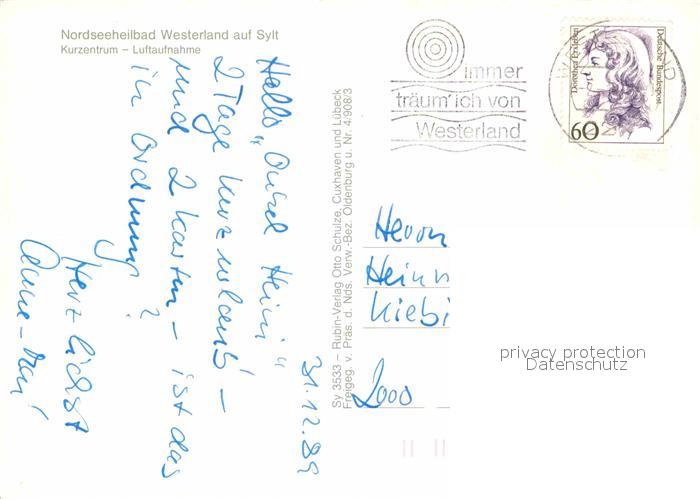 Nordseeheilbad Westerland auf Sylt
Kurzentrum – Luftaufnahme
Hallo „Onkel Heini“
2 Tage Kurzurlaub –
und 2 Karten – ist das
in Ordnung?
Herzlichst
Anne-
31.12.89
Sy 3533 – Rubin-Verlag Otto Schulze, Cuxhaven und Lübeck
Freigeg. v. Präs. d. Nds. Verw.-Bez. Oldenburg u. Nr. 4/908/3
immer
träum' ich von
Westerland
Deutsche Bundespost
60
Herrn
Hein
Kiebi
2000
privacy protection
Datenschutz